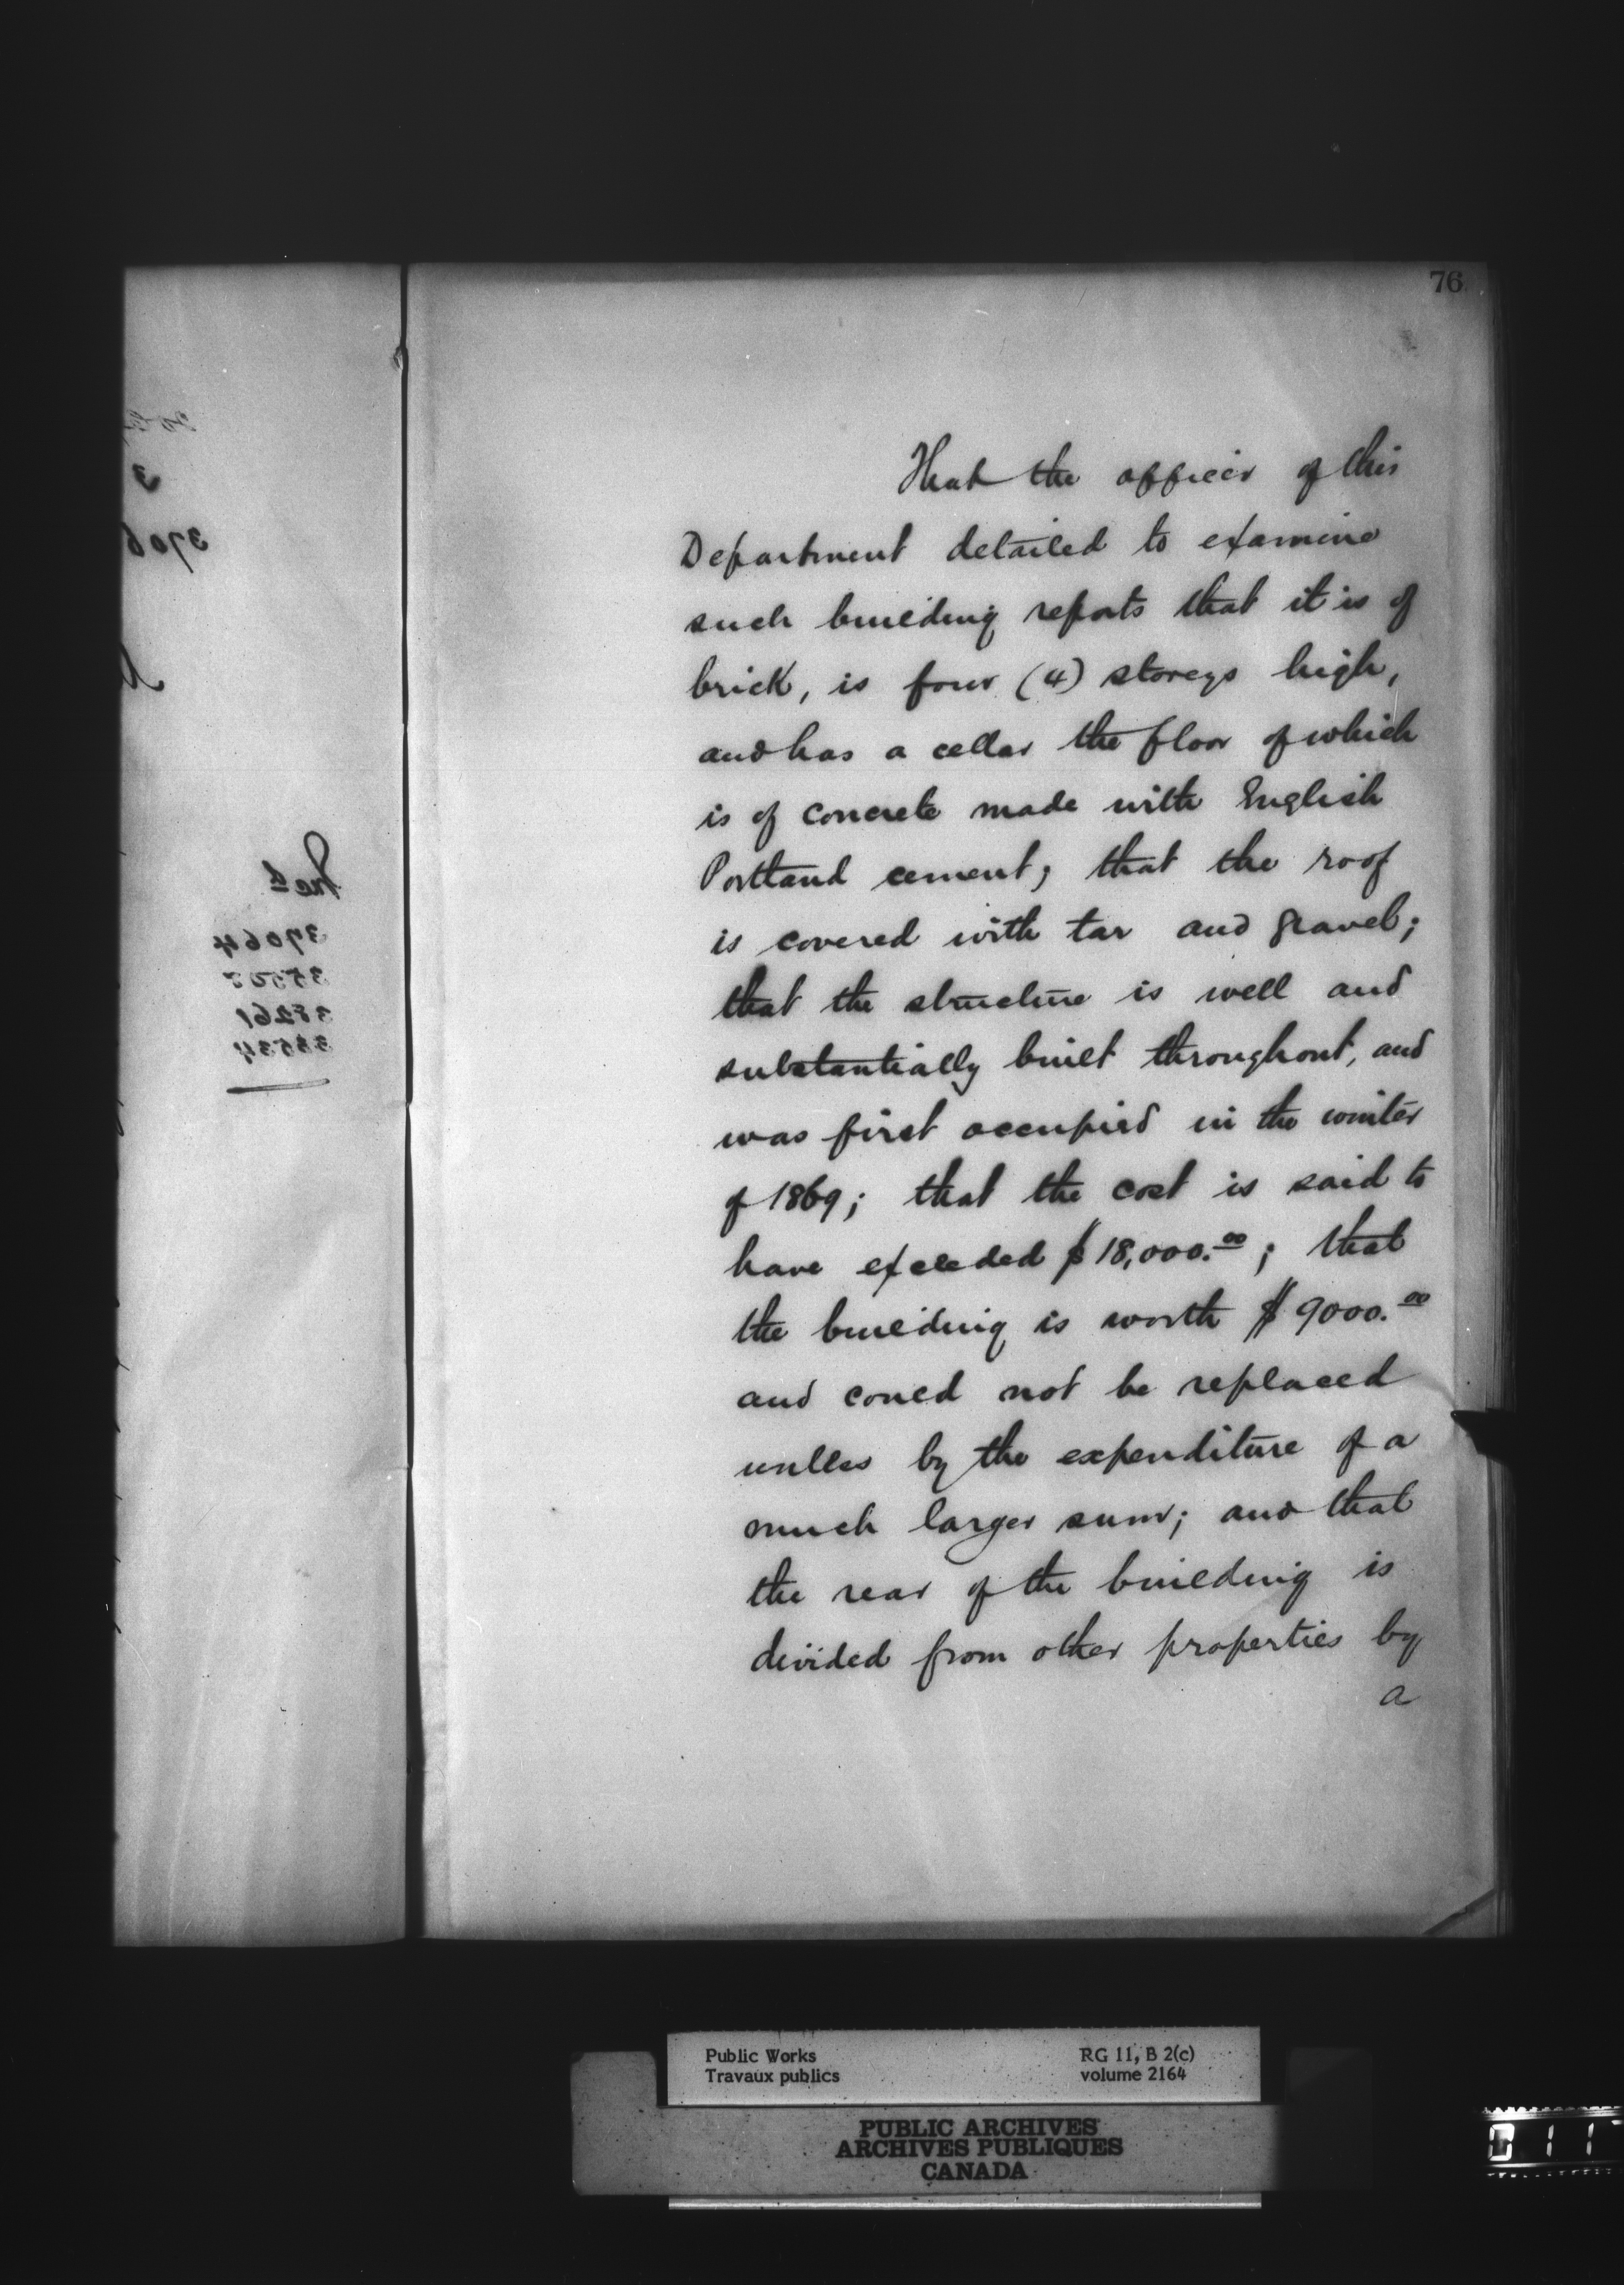 76
That the officer of this
Department detailed to examine
such building reports that it is of
brick, is four (4) storeys high,
and has a cellar the floor of which
is of concrete made with English
Portland cement; that the roof
is covered with tar and gravel;
that the structure is well and
substantially built throughout, and
was first occupied in the winter
of 1869; that the cost is said to
have exceeded $18,000.00; that
the building is worth $9000.00
and could not be replaced
unless by the expenditure of a
much larger sum; and that
the rear of the building is
divided from other properties by
a
37064
38261
38534
Public Works
Travaux publics
RG 11, B 2(c)
volume 2164
PUBLIC ARCHIVES
ARCHIVES PUBLIQUES
CANADA